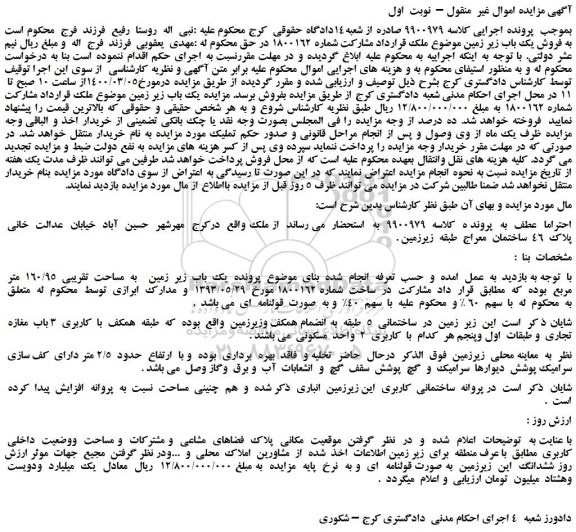 آگهی مزایده اموال غیر منقول – نوبت اول
بموجب پرونده اجرایی کلاسه ۹۹۰۰۹۷۹ صادره از شعبه ۱۴دادگاه حقوقی کرج محکوم علیه :نبی اله روستا رفیع فرزند فرج محکوم است
به فروش یک باب زیر زمین موضوع ملک قرارداد مشارکت شماره ۱۸۰۰۱۶۲ در حق محکوم له :مهدی یعقوبی فرزند فرج اله و مبلغ ریال نیم
عشر دولتی. با توجه به اینکه اجراییه به محکوم علیه ابلاغ گردیده و در مهلت مقررنسبت به اجرای حکم اقدام ننموده است بنا به درخواست
محکوم له و به منظور استیفای محکوم به و هزینه های اجرایی اموال محکوم علیه برابر متن آگهی و نظریه کارشناسی از سوی این اجرا توقیف
توسط کارشناس دادگستری کرج بشرح ذیل توصیف و ارزیابی شده و مقرر گردیده از طریق مزایده درمورخ۱۴۰۰/۰۳/۰۵از ساعت ۱۰ صبح تا
۱۱ در محل اجرای احکام مدنی شعبه دادگستری کرج از طریق مزایده بفروش برسد. مزایده یک باب زیر زمین موضوع ملک قرارداد مشارکت
شماره ۱۸۰۰۱۶۲ به مبلغ ۱۲/۸۰۰/۰۰۰/۰۰۰ ریال طبق نظریه کارشناس شروع و به هر شخص حقیقی و حقوقی که بالاترین قیمت را پیشنهاد
نمایید فروخته خواهد شد. ده درصد از وجه مزایده را فی المجلس بصورت وجه نقد یا چک بانکی تضمینی از خریدار اخذ و الباقی وجه
مزایده ظرف یک ماه از وی وصول و پس از انجام مراحل قانونی و صدور حکم تملیک مورد مزایده به نام خریدار منتقل خواهد شد. در
صورتی که در مهلت مقرر خریدار وجه مزایده را پرداخت ننماید سپرده وی پس از کسر هزینه های مزایده به نفع دولت ضبط و مزایده تجدید
می گردد. کلیه هزینه های نقل وانتقال بعهده محکوم علیه است که از محل فروش پرداخت خواهدشد طرفین می توانند ظرف مدت یک هفته
از تاریخ مزایده نسبت به نحوه انجام مزایده اعتراض نمایند که در این صورت تا رسیدگی به اعتراض از سوی دادگاه مورد مزایده بنام خریدار
منتقل نخواهدشد ضمنا طالبین شرکت در مزایده می توانند ظرف ۵ روز قبل از مزایده بااطلاع از مال مورد مزایده بازدید نمایند.
مال مورد مزایده و بهای آن طبق نظر کارشناس بدین شرح است:
احتراما عطف به پرونده کلاسه ۹۹۰۰۹۷۹ به استحضار می رساند از ملک واقع درکرج مهرشهر حسین آباد خیابان عدالت خانی
پلاک ۴۶ ساختمان معراج طبقه زیرزمین .
مشخصات بنا :
با توجه به بازدید به عمل امده و حسب تعرفه انجام شده بنای موضوع پرونده یک باب زیر زمین به مساحت تقریبی ۱۶۰/۹۵ متر
مربع بوده که مطابق قرار داد مشارکت در ساخت شماره ۱۸۰۰۱۶۲ مورخ ۱۳۹۳/۰۵/۲۹ و مدارک ابرازی توسط محکوم له متعلق
به محکوم له با سهم ۶۰ % و محکوم علیه با سهم ۴۰% و به صورت قولنامه ای می باشد .
شایان ذکر است این زیر زمین در ساختمانی ۵ طبقه به انضمام همکف وزیرزمین واقع بوده که طبقه همکف با کاربری ۳ باب مغازه
تجاری و طبقات اول وپنجم هر کدام با کاربری ۲ واحد مسکونی می باشند .
نظر به معاینه محلی زیرزمین فوق الذکر درحال حاضر تخلیه و فاقد بهره برداری بوده و با ارتفاع حدود ۲/۵ متر دارای کف سازی
سرامیک پوشش دیوارها سرامیک و گچ پوشش سقف گچ و انشعابات آب و برق وگاز وصل می باشد .
شایان ذکر است در پروانه ساختمانی کاربری این زیرزمین انباری ذکر شده و هم چنینی مساحت نسبت به پروانه افزایش پیدا کرده
است .
ارزش روز :
با عنایت به توضیحات اعلام شده و در نظر گرفتن موقعیت مکانی پلاک فضاهای مشاعی و مشترکات و مساحت ووضعیت داخلی
کاربری مطابق با عرف منطقه برای زیر زمین اطلاعات اخذ شده از مشاورین املاک محلی و ...ودر نظر گرفتن مجیع جهات موثر ارزش
روز ششدانگ این زیرزمین به صورت قولنامه ای و به نرخ پایه مزایده به مبلغ ۱۲/۸۰۰/۰۰۰/۰۰۰ ریال معادل یک میلیارد ودویست
وهشتاد میلیون تومان ارزیابی و اعلام میگردد .
دادورز شعبه ۴ اجرای احکام مدنی دادگستری کرج – شکوری